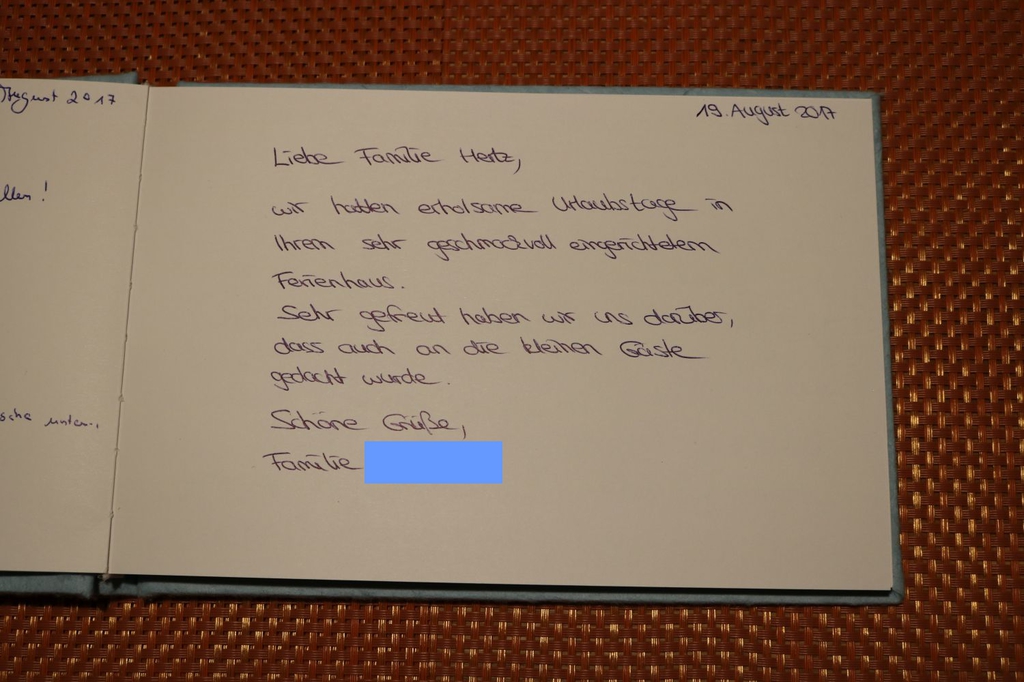 August 2017
!
sche unter..
19. August 2017
Liebe Familie Hertz,
wir hatten erholsame Urlaubstage in
Ihrem sehr geschmackvoll eingerichtetem
Ferienhaus.
Sehr gefreut haben wir uns darüber,
dass auch an die kleinen Gäste
gedacht wurde.
Schöne Grüße,
Familie